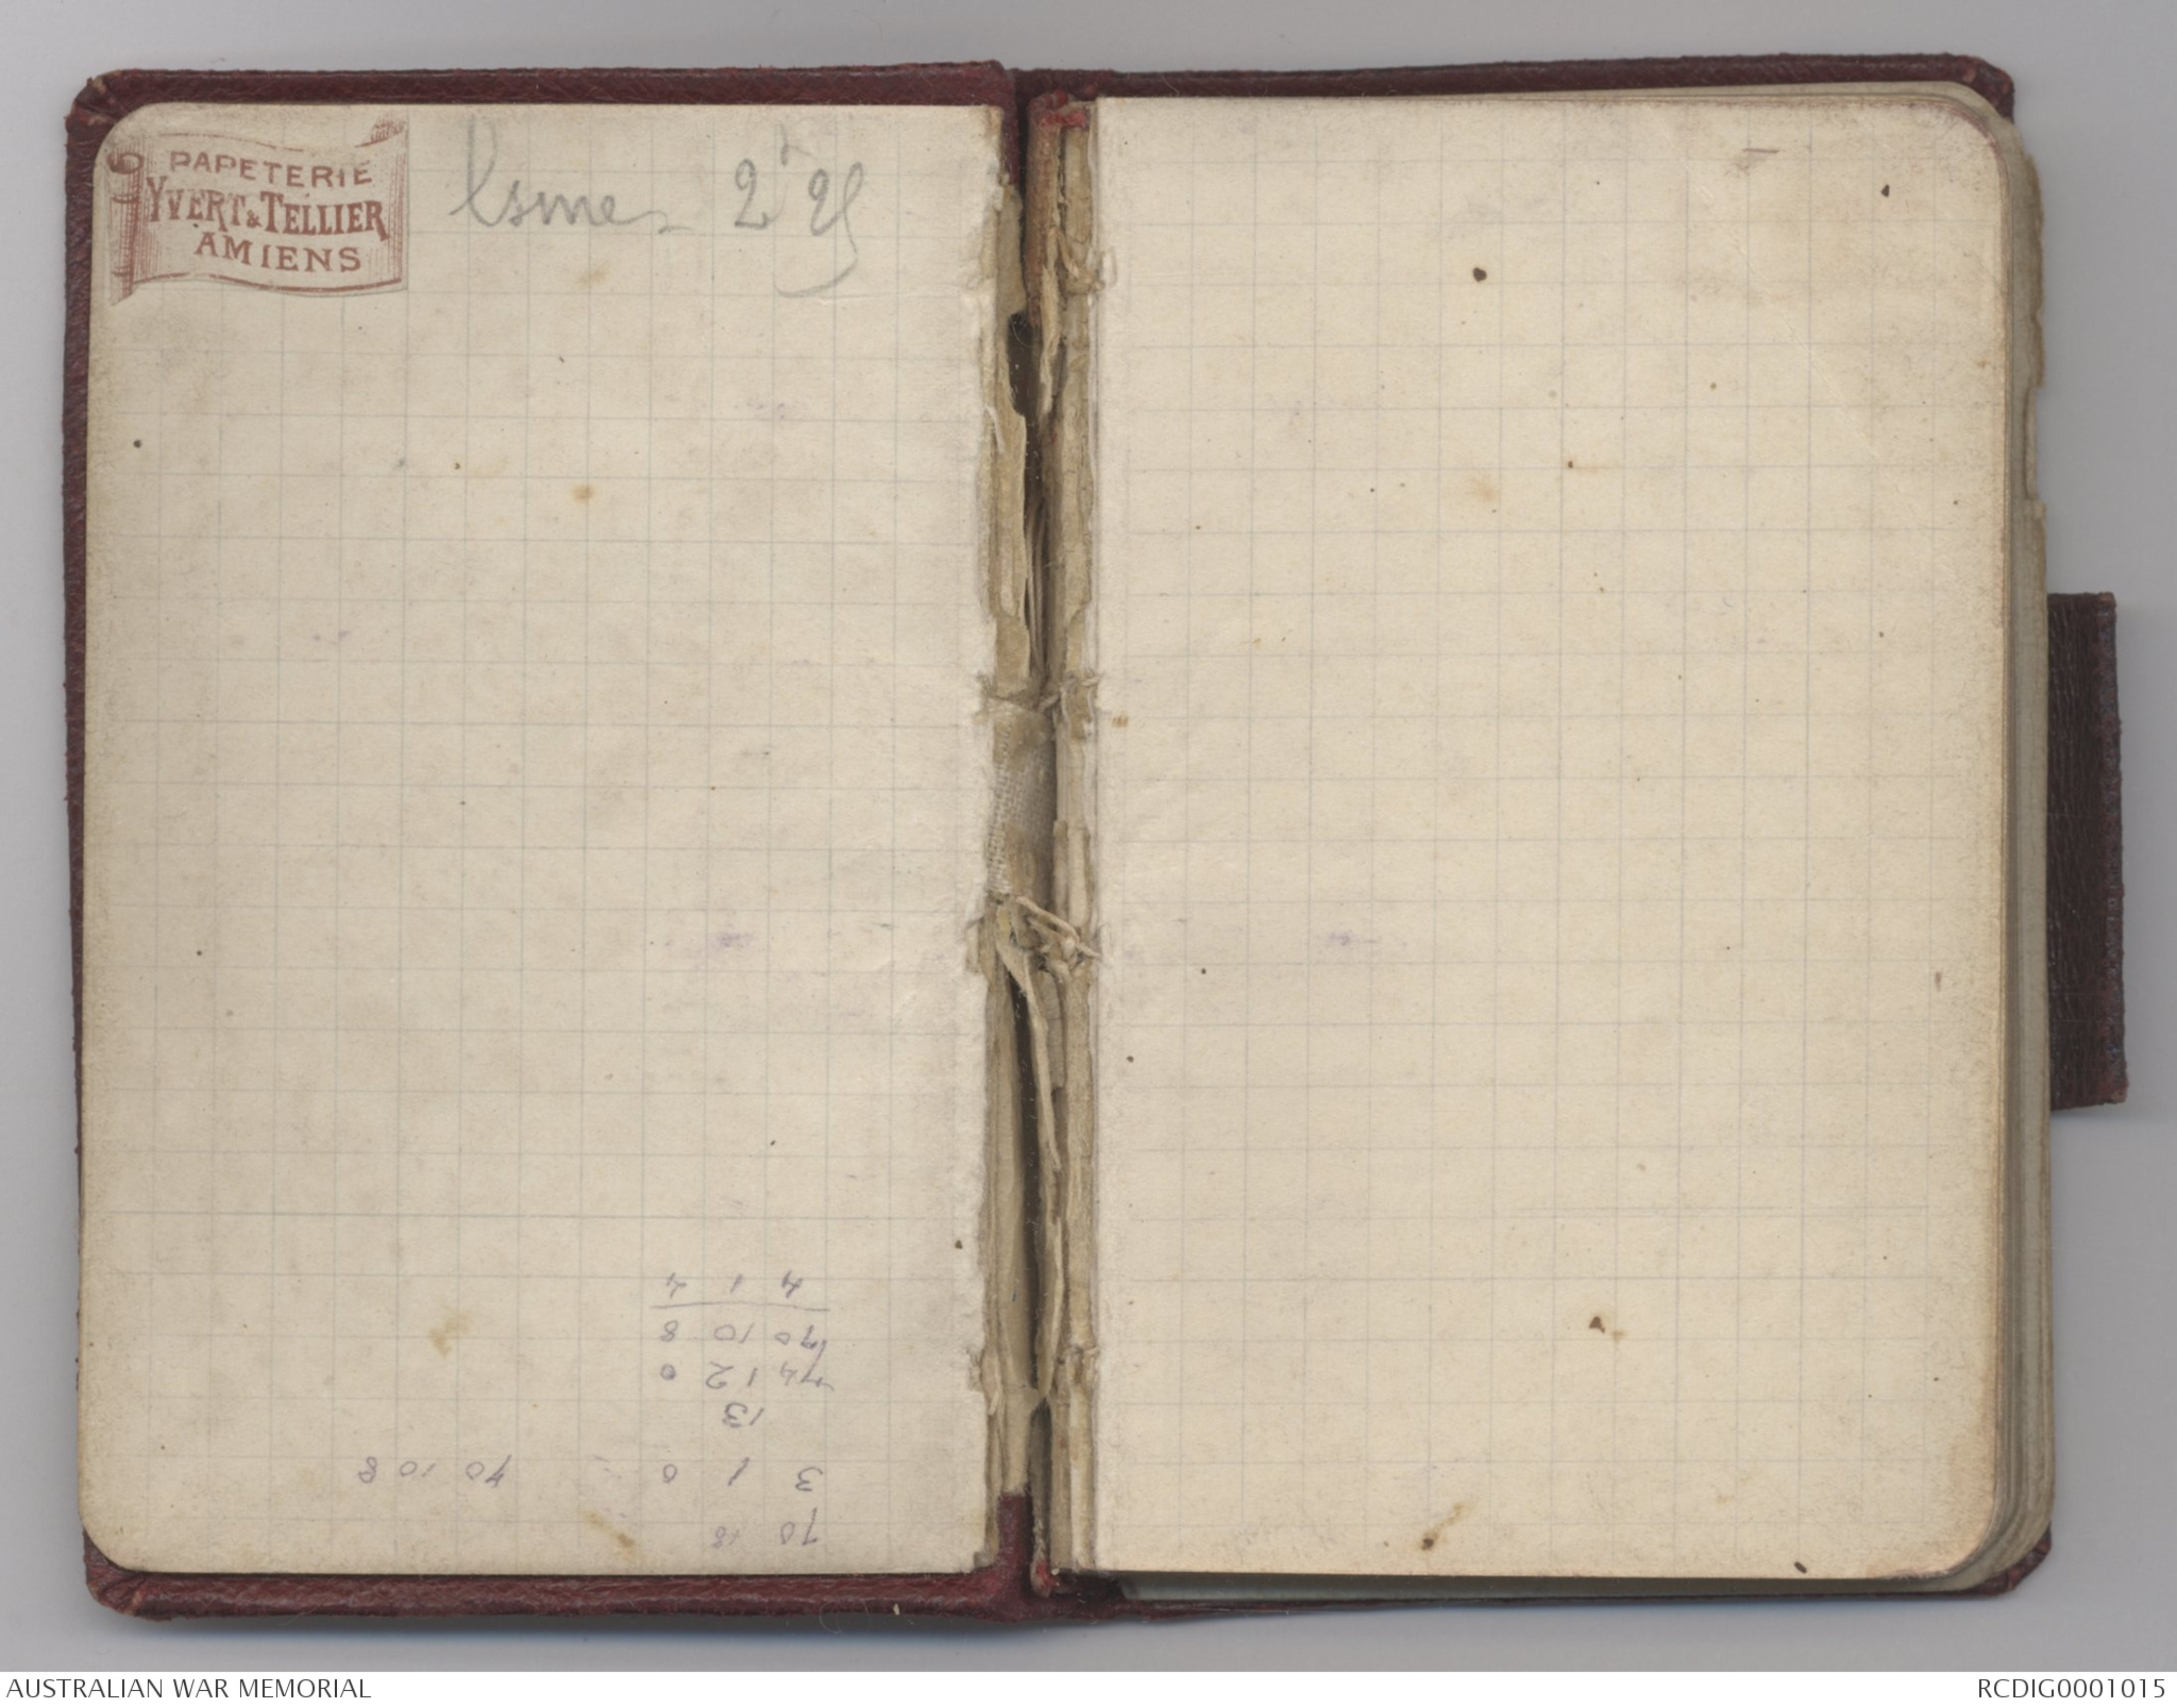 PAPETERIE
YVERT & TELLIER
AMIENS
70 18
3 1 0 70 10 8
13
74 12 0
70 10 8
4 1 4
AUSTRALIAN WAR MEMORIAL
RCDIG0001015